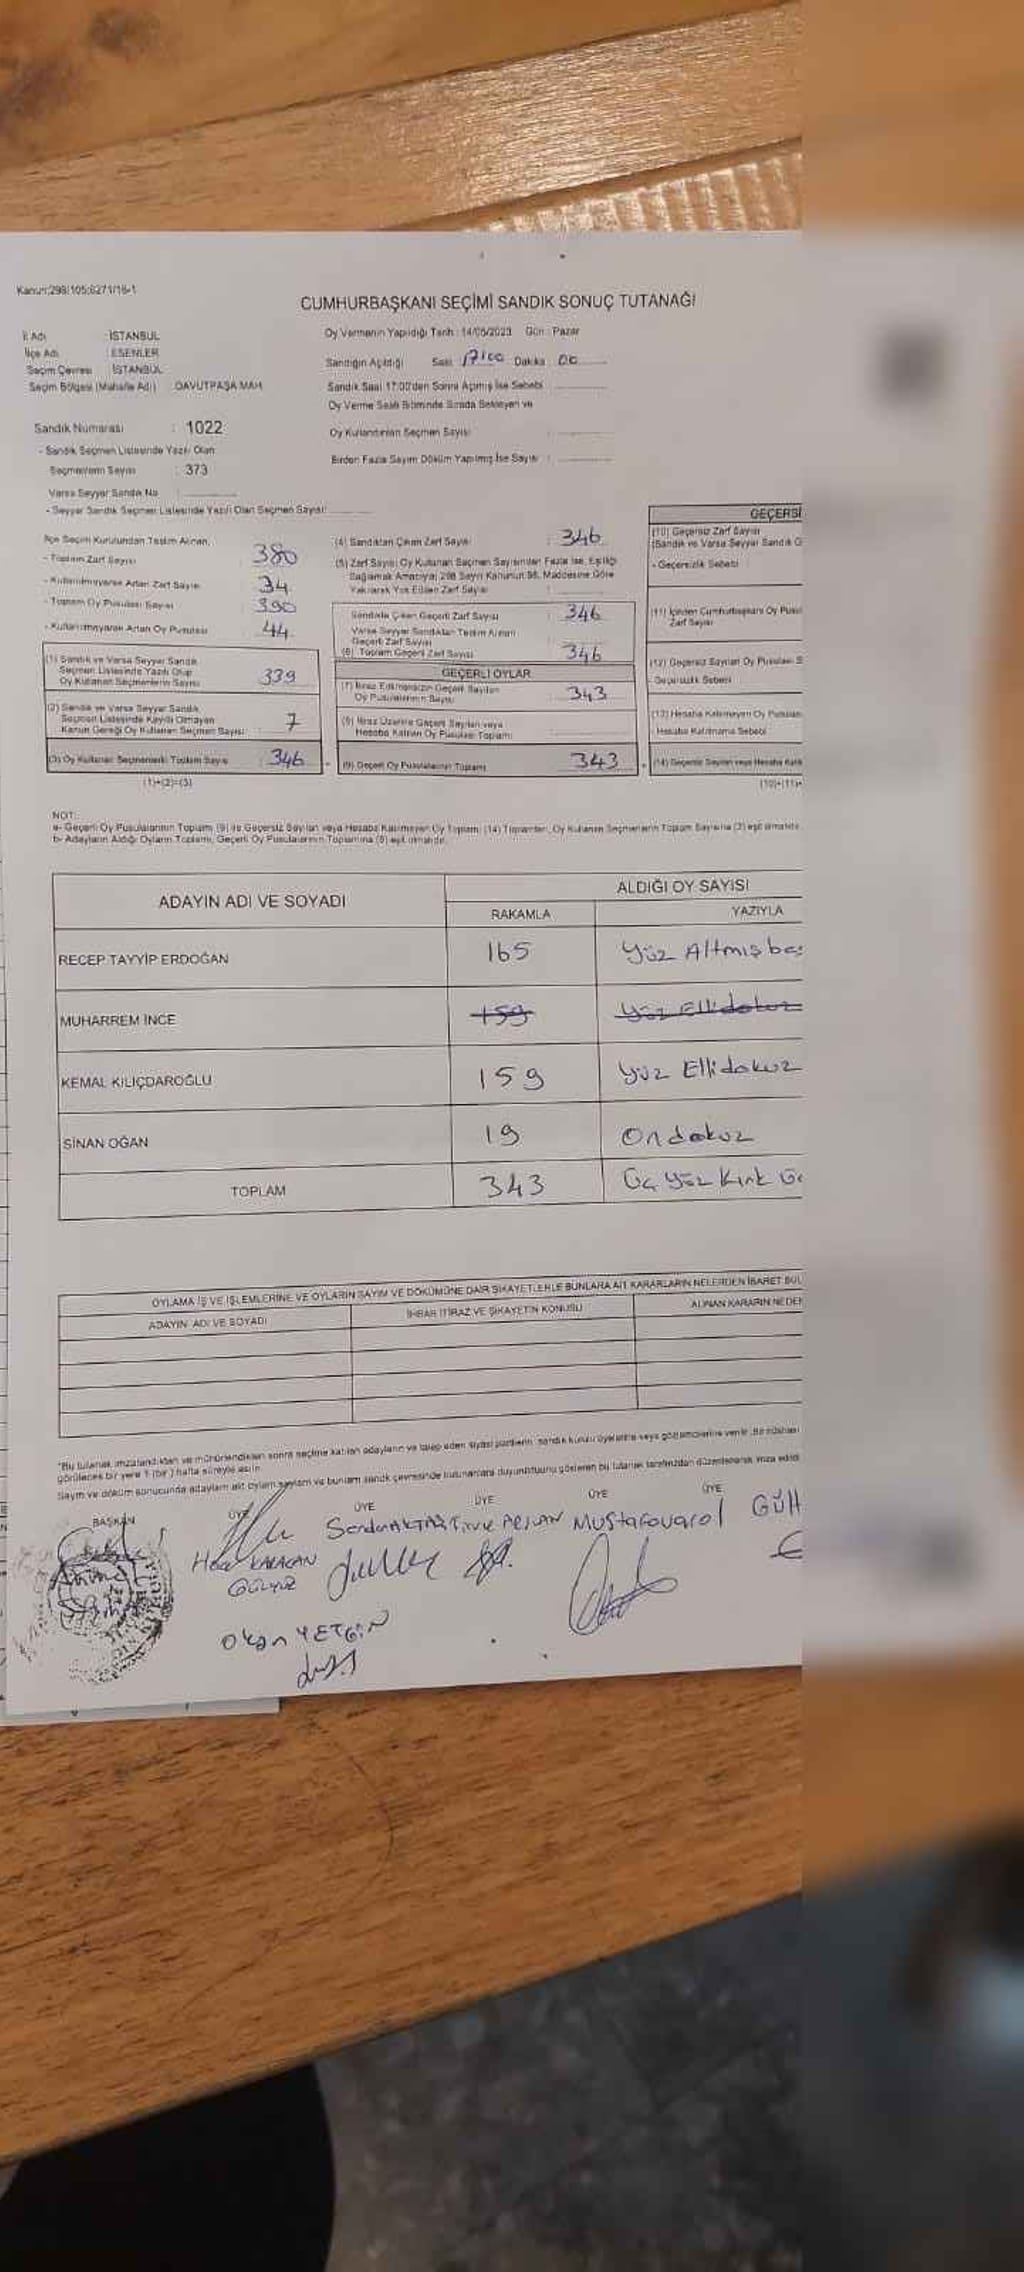 Kanun:298/105;6271/16-1
CUMHURBAŞKANI SEÇİMİ SANDIK SONUÇ TUTANAĞI
İl Adı : İSTANBUL
İlçe Adı : ESENLER
Seçim Çevresi : İSTANBUL
Seçim Bölgesi (Mahalle Adı) : DAVUTPAŞA MAH.
Oy Vermenin Yapıldığı Tarih : 14/05/2023 Gün : Pazar
Sandığın Açıldığı Saat 17:00 Dakika 00
Sandık Saat 17:00'den Sonra Açımış İse Sebebi :
Oy Verme Saati Bitiminde Sırada Bekleyen ve
Oy Kullandırılan Seçmen Sayısı :
Birden Fazla Sayım Döküm Yapılmış İse Sayısı :
Sandık Numarası : 1022
- Sandık Seçmen Listesinde Yazılı Olan
Seçmenlerin Sayısı : 373
Varsa Seyyar Sandık No :
- Seyyar Sandık Seçmen Listesinde Yazılı Olan Seçmen Sayısı:
İlçe Seçim Kurulundan Teslim Alınan;
- Toplam Zarf Sayısı : 380
- Kullanılmayarak Artan Zarf Sayısı : 34
- Toplam Oy Pusulası Sayısı : 390
- Kullanılmayarak Artan Oy Pusulası : 44
(1) Sandık ve Varsa Seyyar Sandık
Seçmen Listesinde Yazılı Olup
Oy Kullanan Seçmenlerin Sayısı 339
(2) Sandık ve Varsa Seyyar Sandık
Seçmen Listesinde Kayıtlı Olmayan
Kanun Gereği Oy Kullanan Seçmen Sayısı 7
(3) Oy Kullanan Seçmenlerin Toplam Sayısı 346
(1)+(2)=(3)
(4) Sandıktan Çıkan Zarf Sayısı : 346
(5) Zarf Sayısı Oy Kullanan Seçmen Sayısından Fazla İse, Eşitliği
Sağlamak Amacıyla; 298 Sayılı Kanunun 98. Maddesine Göre
Yakılarak Yok Edilen Zarf Sayısı :
Sandıkta Çıkan Geçerli Zarf Sayısı : 346
Varsa Seyyar Sandıktan Teslim Alınan
Geçerli Zarf Sayısı
(6) Toplam Geçerli Zarf Sayısı 346
GEÇERLİ OYLAR
(7) İtiraz Edilmeksizin Geçerli Sayılan
Oy Pusulalarının Sayısı : 343
(8) İtiraz Üzerine Geçerli Sayılan veya
Hesaba Katılan Oy Pusulası Toplamı :
(9) Geçerli Oy Pusulalarının Toplamı 343
GEÇERSİ
(10) Geçersiz Zarf Sayısı
(Sandık ve Varsa Seyyar Sandık G
- Geçersizlik Sebebi :
(11) İçinden Cumhurbaşkanı Oy Pusul
Zarf Sayısı
(12) Geçersiz Sayılan Oy Pusulası S
Geçersizlik Sebebi
(13) Hesaba Katılmayan Oy Pusulas
Hesaba Katılmama Sebebi
(14) Geçersiz Sayılan veya Hesaba Katıl
(10)+(11)+
NOT:
a- Geçerli Oy Pusulalarının Toplamı (9) ile Geçersiz Sayılan veya Hesaba Katılmayan Oy Toplamı (14) Toplamları, Oy Kullanan Seçmenlerin Toplam Sayısına (3) eşit olmalıdır.
b- Adayların Aldığı Oyların Toplamı, Geçerli Oy Pusulalarının Toplamına (9) eşit olmalıdır.
ADAYIN ADI VE SOYADI
ALDIĞI OY SAYISI
RAKAMLA YAZIYLA
RECEP TAYYİP ERDOĞAN 165 Yüz Altmış beş
MUHARREM İNCE 159 Yüz Ellidokuz
KEMAL KILIÇDAROĞLU 159 Yüz Ellidokuz
SİNAN OĞAN 19 Ondokuz
TOPLAM 343 Üç Yüz Kırk Üç
OYLAMA İŞ VE İŞLEMLERİNE VE OYLARIN SAYIM VE DÖKÜMÜNE DAİR ŞİKAYETLERLE BUNLARA AİT KARARLARIN NELERDEN İBARET BUL
ADAYIN ADI VE SOYADI İHBAR İTİRAZ VE ŞİKAYETİN KONUSU ALINAN KARARIN NEDEN
"Bu tutanak imzalandıktan ve mühürlendikten sonra seçime katılan adayların ve talep eden siyasi partilerin, sandık kurulu üyelerine veya gözlemcilerine verilir. Bir nüshası
görülecek bir yere 1 (bir) hafta süreyle asılır.
Sayım ve döküm sonucunda adayların ait oyların sayılarını ve bunların sandık çevresinde bulunanlara duyurulduğunu gösteren bu tutanak tarafımızdan düzenlenerek imza edildi
BAŞKAN ÜYE ÜYE ÜYE ÜYE ÜYE
Serdar AKTAŞ Mustafa varol GÜlt
KARACAN
Okan YETGİN